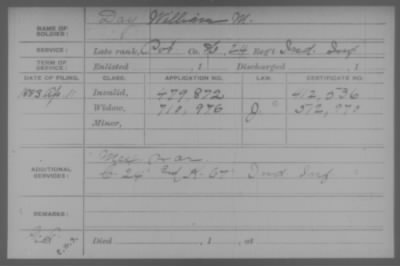 NAME OF SOLDIER: Day William M.
SERVICE: Late rank, Co. 24 Reg't Ind. Inf
TERM OF SERVICE: Enlisted , 1 Discharged , 1
DATE OF FILING. CLASS. APPLICATION NO. LAW. CERTIFICATE NO.
1883 Ap. 11 Invalid, 479,872 412,536
Widow, 710,976 512,970
Minor,
ADDITIONAL SERVICES: Mex War
24 Ind Inf
REMARKS:
Died , 1 , at